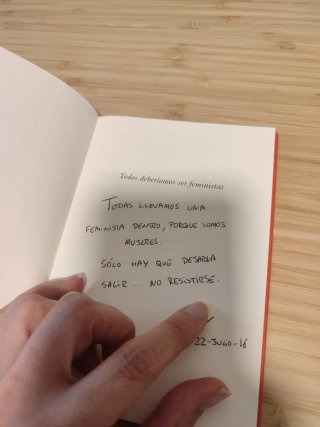 Todos deberíamos ser feministas
TODAS LLEVAMOS UNA
FEMINISTA DENTRO, PORQUE SOMOS
MUJERES.
SÓLO HAY QUE DEJARLA
SALIR... NO RESISTIRSE.
22-JULIO-16